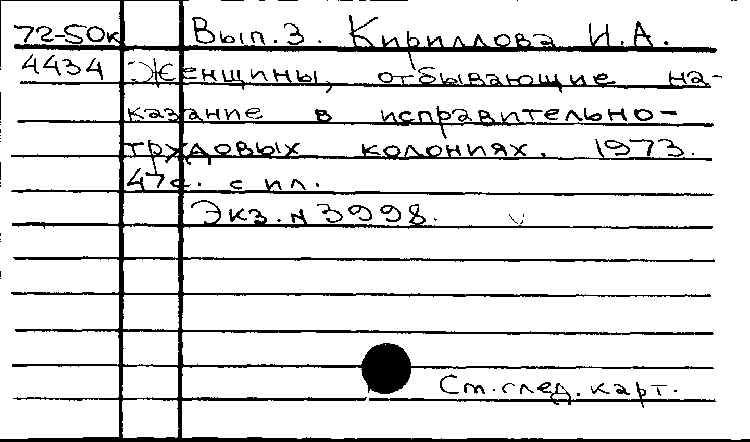 72-50к Вып.3. Кириллова И.А.
4434 Женщины, отбывающие на-
казание в исправительно-
трудовых колониях. 1973.
47с. с ил.
Экз. N 3998.
См. след. карт.